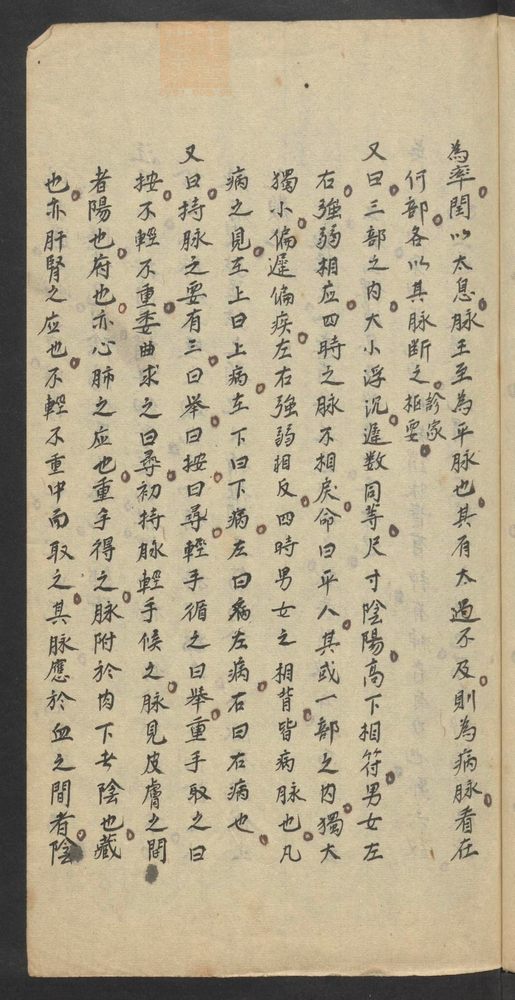 為率閏以太息脉五至為平脉也其有太過不及則為病脉看在
何部各以其脉断之診家枢要
又曰三部之内大小浮沉遅数同等尺寸陰陽高下相符男女左
右強弱相应四時之脉不相戾命曰平人其或一部之内獨大
獨小偏遅偏疾左右強弱相反四時男女之相背皆病脉也凡
病之見在上曰上病在下曰下病左曰病左病右曰右病也
又曰持脉之要有三曰举曰按曰尋軽手循之曰举重手取之曰
按不軽不重委曲求之曰尋初持脉軽手候之脉見皮膚之間
者陽也府也亦心肺之应也重手得之脉附於肉下者陰也藏
也亦肝腎之应也不軽不重中而取之其脉應於血之間者陰